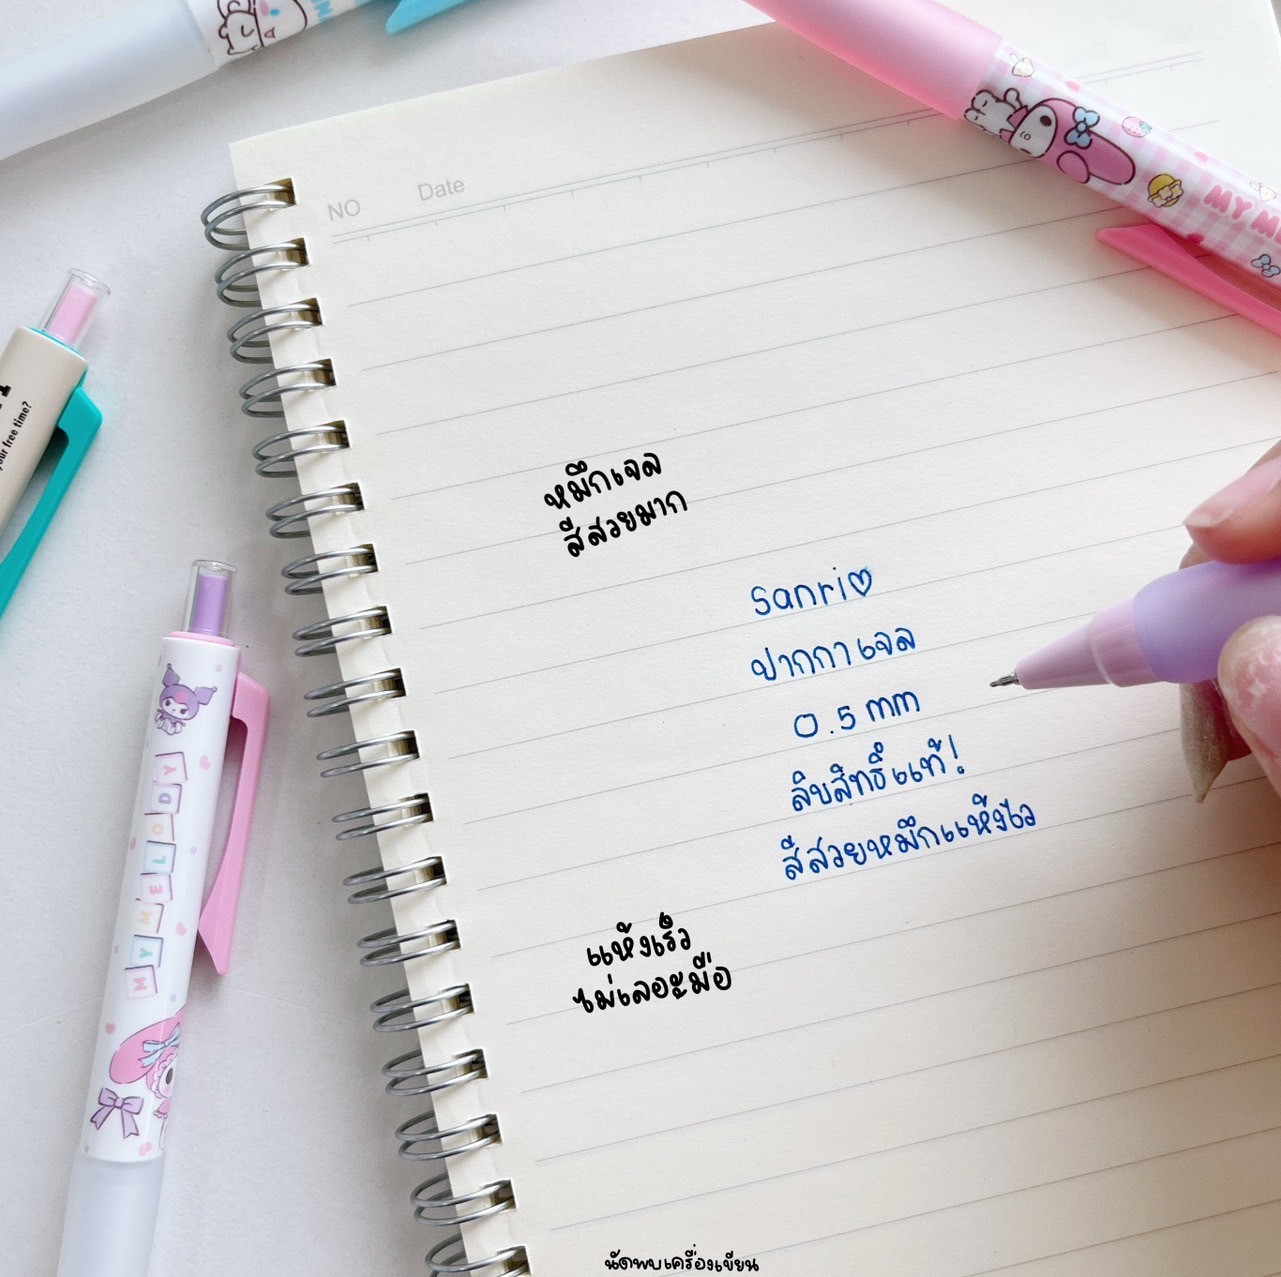 NO Date
MY M
your free time?
หมึกเจล
สีสวยมาก
Sanri♡
ปากกาเจล
0.5 mm
ลิขสิทธิ์แท้!
สีสวยหมึกแห้งไว
MY MELODY
แห้งเร็ว
ไม่เลอะมือ
นัดพบเครื่องเขียน